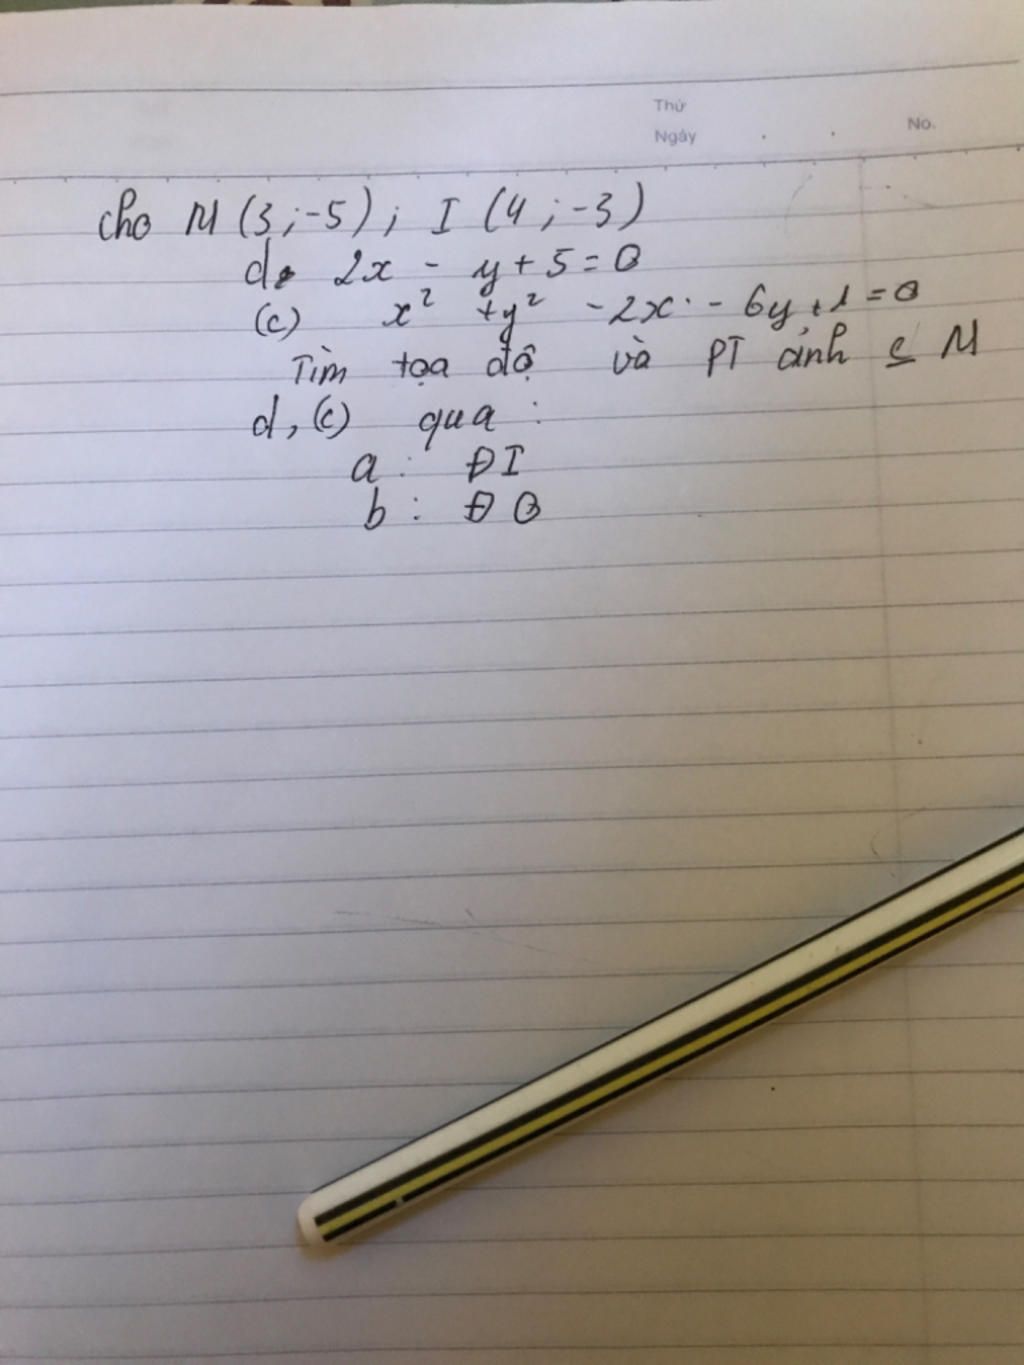 Thứ
Ngày No.
Cho M (3 ; -5) ; I (4 ; -3)
d: 2x - y + 5 = 0
(C) x² + y² - 2x - 6y + 1 = 0
Tìm tọa độ và PT ảnh c M
d, (C) qua :
a : ĐI
b : ĐO